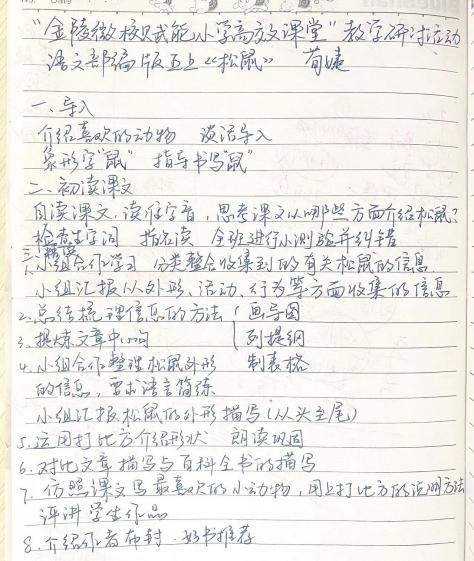 "金陵微校赋能小学高效课堂"教学研讨活动
语文部编版五上《松鼠》 荀婕
一、导入
介绍喜欢的动物 谈话导入
象形字"鼠" 指导书写"鼠"
二、初读课文
自读课文,读准字音,思考课文从哪些方面介绍松鼠?
检查生字词 指名读 全班进行小测验并纠错
三、精读
1、小组合作学习 分类整合收集到的有关松鼠的信息
小组汇报从外形、活动、行为等方面收集的信息
2.总结梳理信息的方法 { 画导图
3.提炼文章中心句 列提纲
4.小组合作整理松鼠外形 制表格
的信息,要求语言简练
小组汇报松鼠的外形描写(从头至尾)
5.运用打比方介绍形状 朗读巩固
6.对比文章描写与百科全书的描写
7.仿照课文写最喜欢的小动物,用上打比方的说明方法
评讲学生作品
8.介绍作者布封.好书推荐